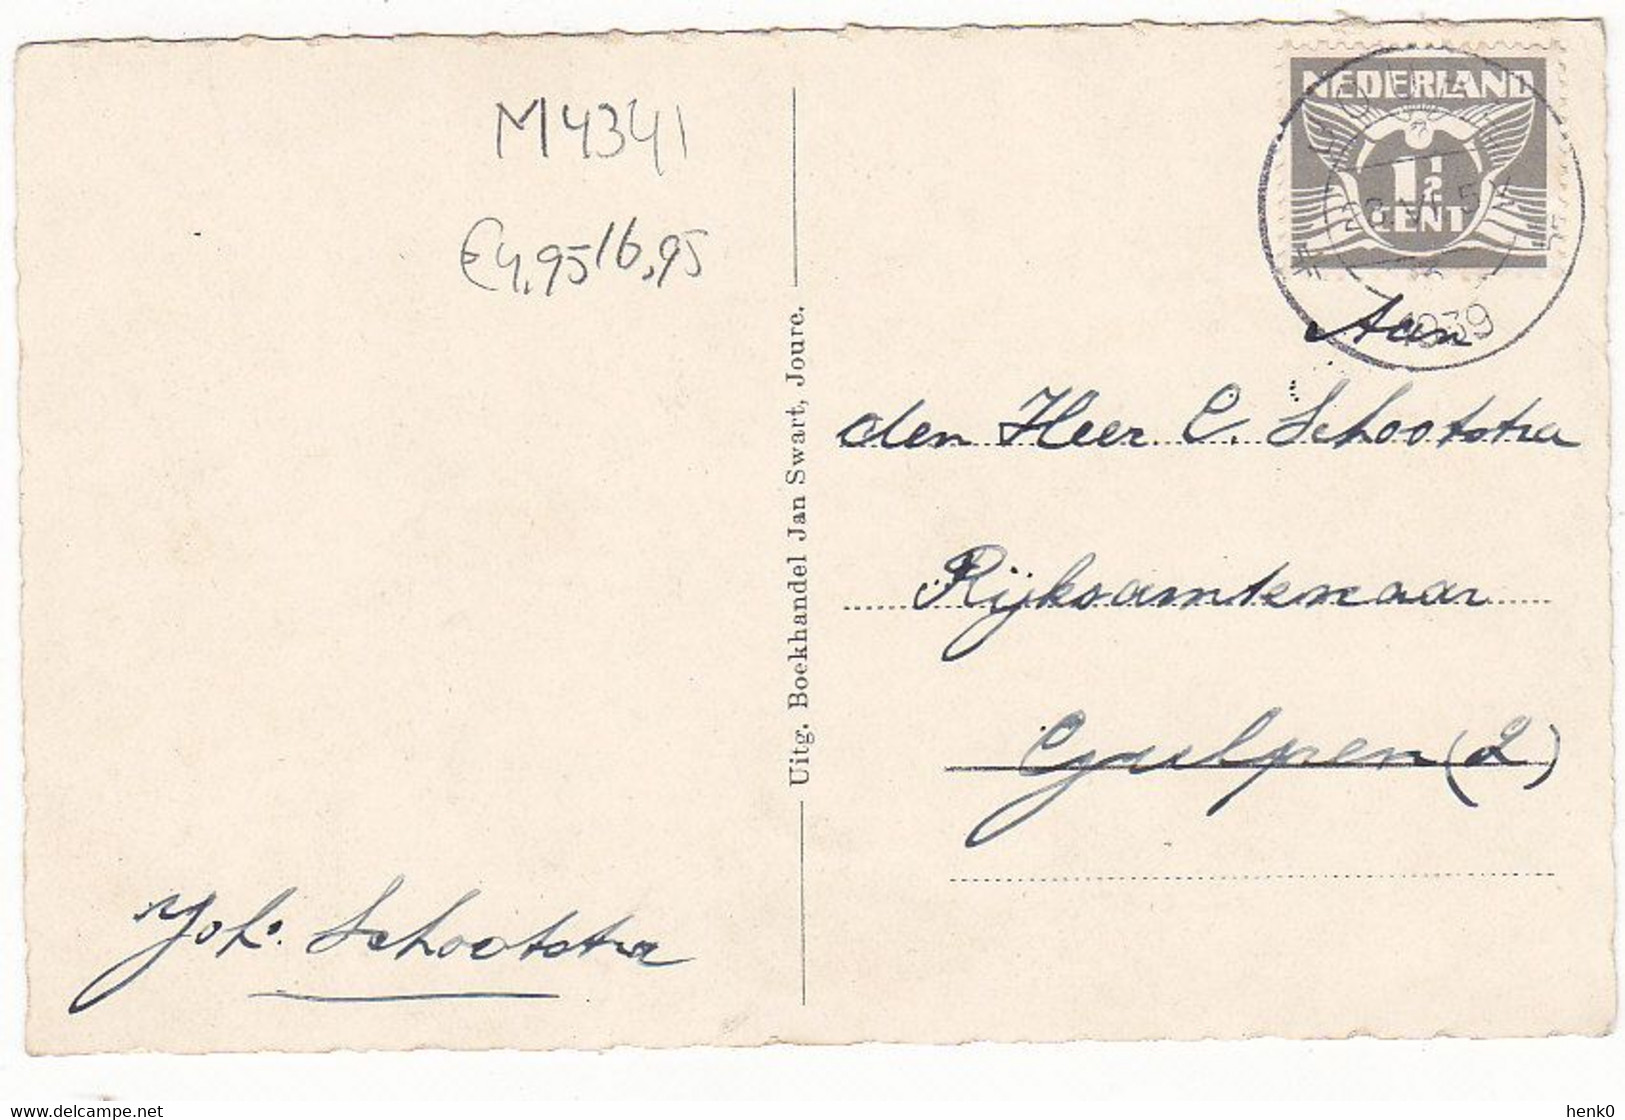 M4341
€4,95/6,95
Uitg. Boekhandel Jan Swart, Joure.
NEDERLAND
1½
CENT
1939
Aan
den Heer C. Schootstra
Rijksambtenaar
Gulpen (L)
Joh. Schootstra
henk0